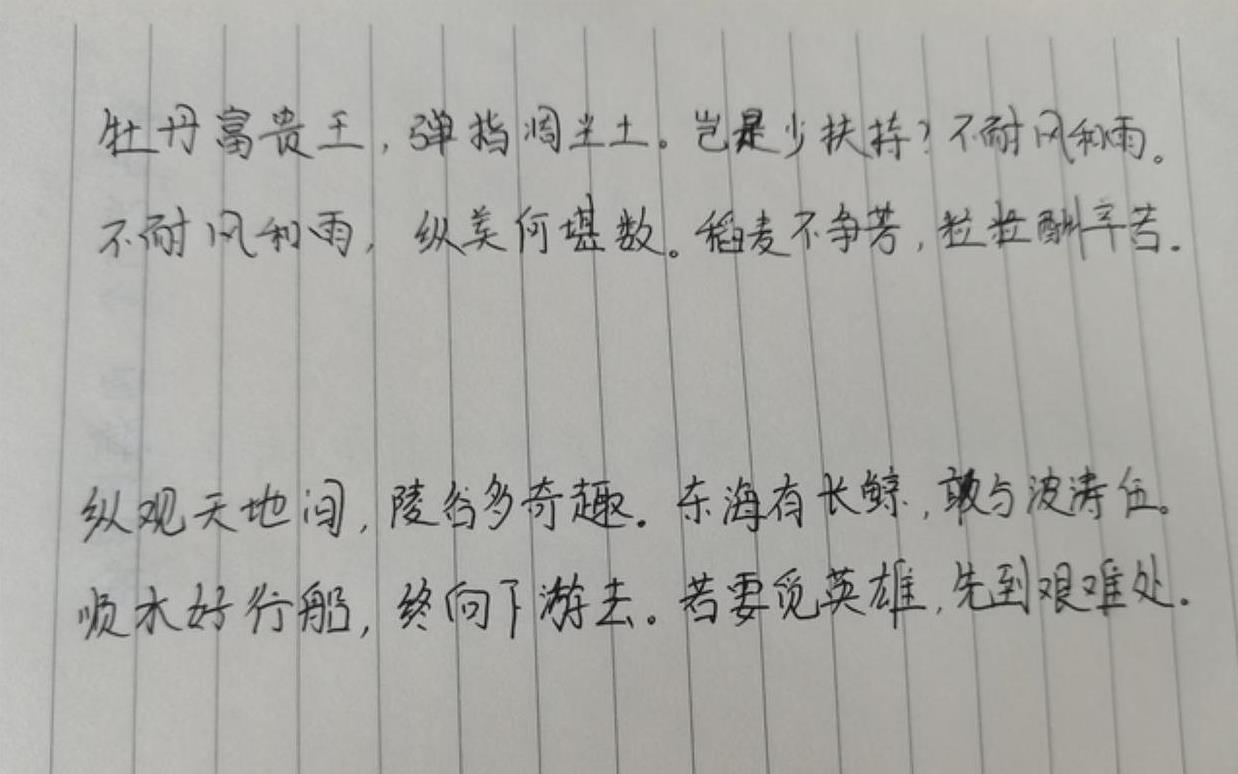 牡丹富贵王，弹指凋尘土。岂是少扶持？不耐风和雨。
不耐风和雨，纵美何堪数。稻麦不争芳，粒粒酬辛苦。
纵观天地间，陵谷多奇趣。东海有长鲸，敢与波涛伍。
顺水好行船，终向下游去。若要觅英雄，先到艰难处。